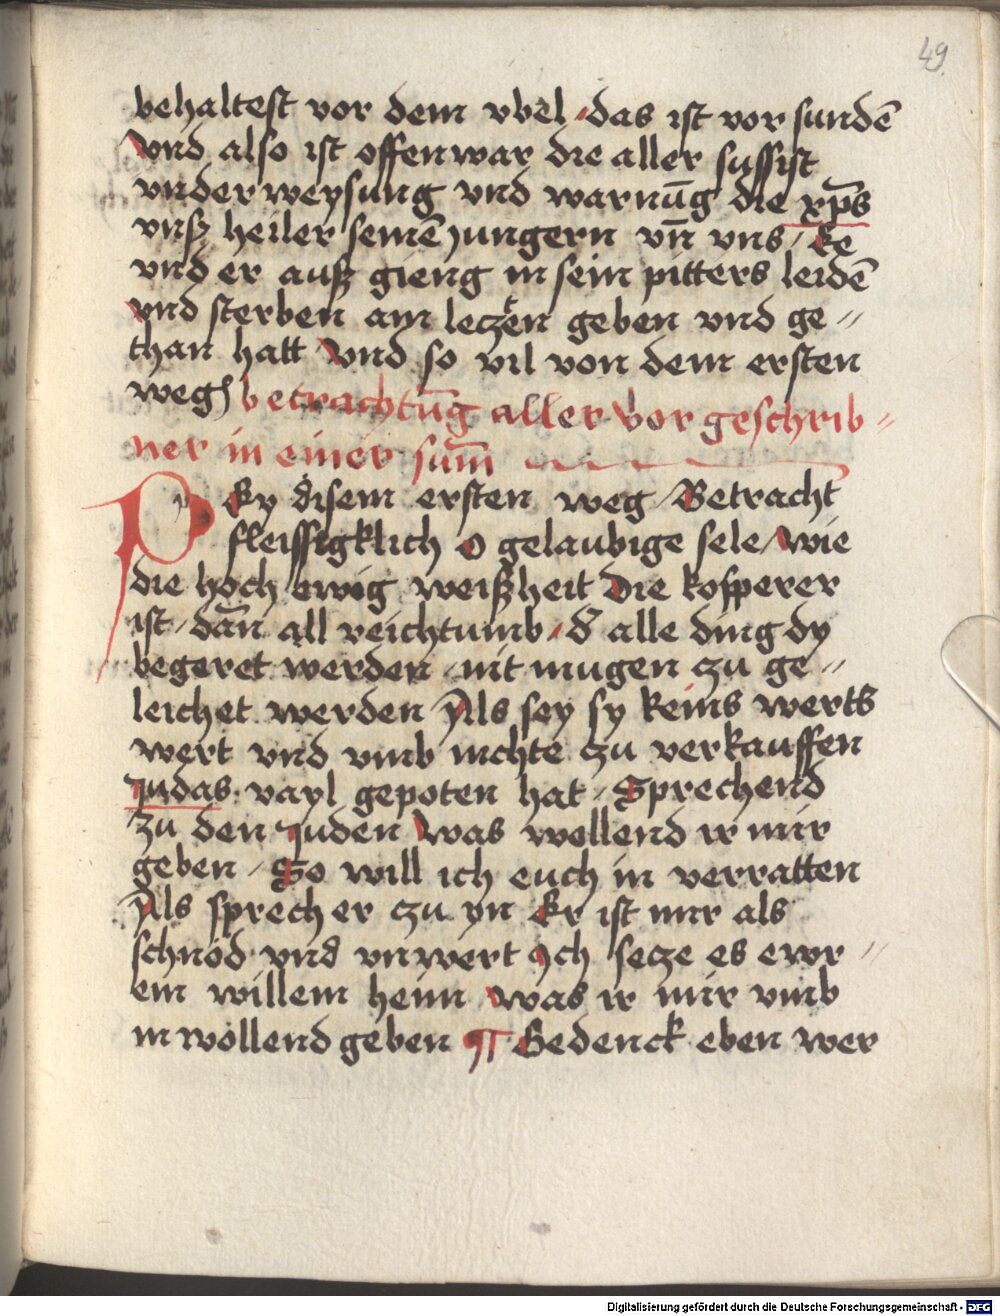 49
behaltest vor dem vbel / das ist vor sundē
vnd also ist offenwar die aller sussist
vnderweysung vnd warnūg die xp̄s
vnsʒ heiler seinē jungern vn̄ vns / Ee
vnd er ausʒ gieng in sein pitters leidē
vnd sterben am leczten geben vnd ge //
than hatt Vnd so vil von dem ersten
weg betrachtūg aller vor geschrib //
ner in einer sum̄
P Ey disem ersten weg / Betracht
fleissigklich O gelaubige sele / Wie
die hoch ewig weisʒheit Die kosperer
ist / dan̄ all reichtumb / d' alle ding dy
begeret werden / nit mugen zu ge //
leichet werden Als sey sy keins werts
wert vnd vmb nichte zu verkauffen
Judas vayl gepoten hat / Sprechend
zu den Juden Was wellend ir mir
geben / So will ich euch in verratten
Als sprech er zu yn Er ist mir als
schnöd vnd vnwert Ich secze es ewr //
em willem heim Was ir mir vmb
in wöllend geben ¶ Gedenck eben wer
Digitalisierung gefördert durch die Deutsche Forschungsgemeinschaft - DFG